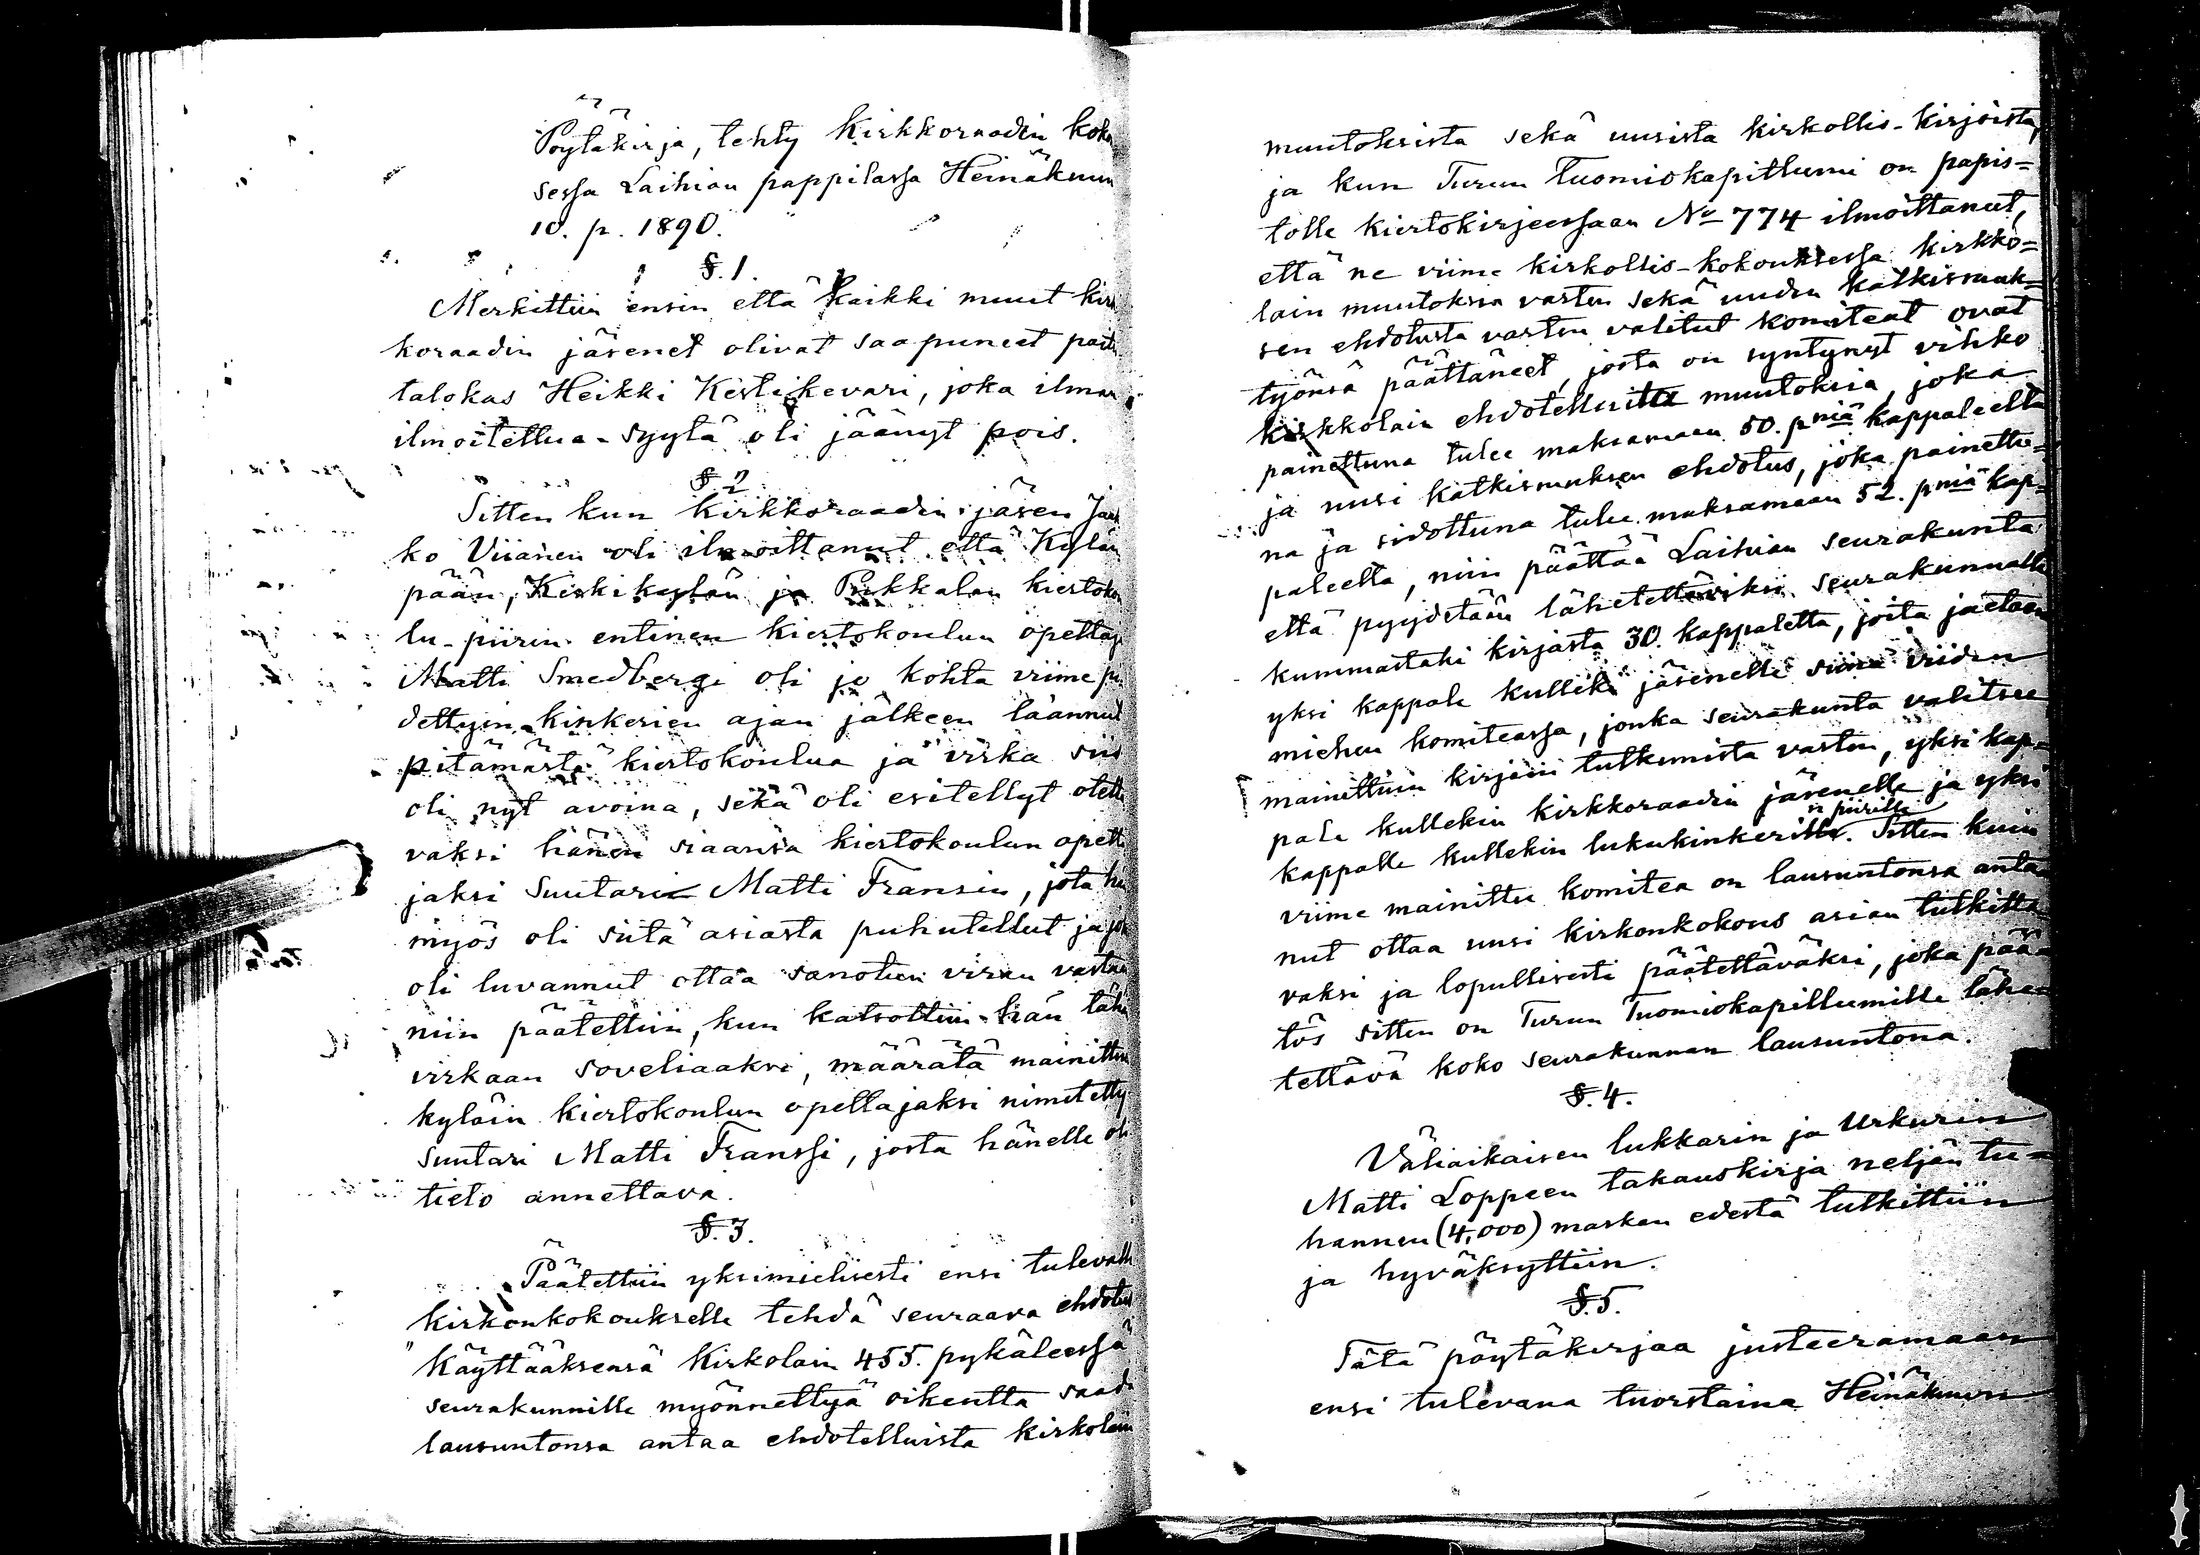 Pöytäkirja, tehty Kirkkoraadin kok
sessa Laihian pappilassa Heinäkuu
10. p. 1890.
§. 1.
Merkittiin ensin että kaikki muut kir
koraadin jäsenet olivat saapuneet paits
talokas Heikki Kestikevari, joka ilman
ilmoitettua-syytä oli jäänyt pois.
§ 2
Sitten kun Kirkkoraadin jäsen Jaak
ko Viianen oli ilmoittanut että Kylän
pään, Keskikylän ja Pukkalan kiertokou
lu-piirin entinen kiertokoulun opettaja
Matti Smedbergi oli jo kohta viime pi
dettyin kinkerien ajan jälkeen läännut
pitämästä kiertokoulua ja virka siis
oli nyt avoina, sekä oli esitellyt otetta
vaksi hänen siaansa kiertokoulun opett
jaksi Suutari Matti Fransin, jota hän
myös oli siitä asiasta puhutellut ja jok
oli luvannut ottaa sanotun viran vastaan
niin päätettiin, kun katsottiin hän tähä
virkaan soveliaaksi, määrätä mainittuin
kyläin kiertokoulun opettajaksi nimitetty
Suutari Matti Franssi, josta hänelle oli
tieto annettava.
§. 3.
Päätettiin yksimielisesti ensi tulevalle
kirkonkokoukselle tehdä seuraava ehdotus
"Käyttääksensä Kirkolain 455. pykäleessä
seurakunnille myönnettyä oikeutta saada
lausuntonsa antaa ehdotelluista kirkolain
muutoksista sekä uusista kirkollis-kirjoista,
ja kun Turun Tuomiokapittumi on papis=
tolle kiertokirjeessaan No 774 ilmoittanut,
että ne viime kirkollis-kokouksessa kirkko=
lain muutoksia varten sekä uuden katkismuk=
sen ehdotusta varten valitut komiteat ovat
työnsä päättäneet, josta on syntynyt vihko
kirkkolain ehdotelluita muutoksia, joka
painettuna tulee maksamaan 50. pniä kappaleelta
ja uusi katkismuksen ehdotus, joka painettu=
na ja sidottuna tulee maksamaan 52. pniä kap=
paleelta, niin päättää Laihian seurakunta
että pyydetään lähetettäviksi seurakunnalle
kummastaki kirjasta 30. kappaletta, joita jaetaan
yksi kappale kulleki jäsenelle siinä viiden
miehen komiteassa, jonka seurakunta valitsee
mainittuin kirjain tutkimista varten, yksi kap=
pale kullekin kirkkoraadin jäsenelle ja yksi
n piirille
kappalle kullekin lukukinkerille. Sitten kuin
viime mainittu komitea on lausuntonsa anta
nut ottaa uusi kirkonkokous asian tutkitta
vaksi ja lopullisesti päätettäväksi, joka pää
tös sitten on Turun Tuomiokapillumille lähe=
tettävä koko seurakunnan lausuntona.
§. 4.
Väliaikaisen lukkarin ja Urkurin
Matti Loppeen takauskirja neljän tu=
hannen (4,000) markan edestä tutkittiin
ja hyväksyttiin.
§. 5.
Tätä pöytäkirjaa justeeramaan
ensi tulevana tuorstaina Heinäkuun